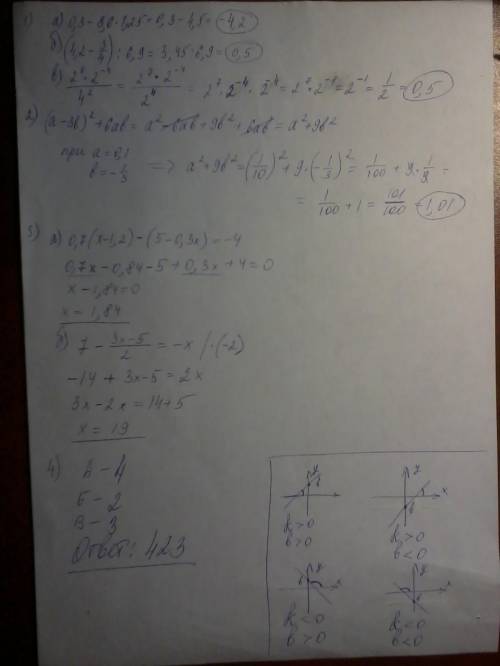 1) а) 0,3 - 3,6 · 1,25 = 0,3 - 4,5 = -4,2
б) (4,2 - 3/4) : 6,9 = 3,45 : 6,9 = 0,5
в) 2⁷·2⁻⁴/4² = 2⁷·2⁻⁴/2⁴ = 2⁷·2⁻⁴·2⁻⁴ = 2⁷·2⁻⁸ = 2⁻¹ = 1/2 = 0,5
2) (a-3b)² + 6ab = a² - 6ab + 9b² + 6ab = a² + 9b²
при a = 0,1
b = -1/3 => a² + 9b² = (1/10)² + 9·(-1/3)² = 1/100 + 9·1/9 =
= 1/100 + 1 = 101/100 = 1,01
3) а) 0,7(x-1,2) - (5-0,3x) = -4
0,7x - 0,84 - 5 + 0,3x + 4 = 0
x - 1,84 = 0
x = 1,84
б) 7 - 3x-5/2 = -x |·(-2)
-14 + 3x - 5 = 2x
3x - 2x = 14 + 5
x = 19
4) А - 4
Б - 2
В - 3
Ответ: 423
y
b
k > 0
b > 0
y
x
b
k > 0
b < 0
y
x
b
k < 0
b > 0
y
b
k < 0
b < 0